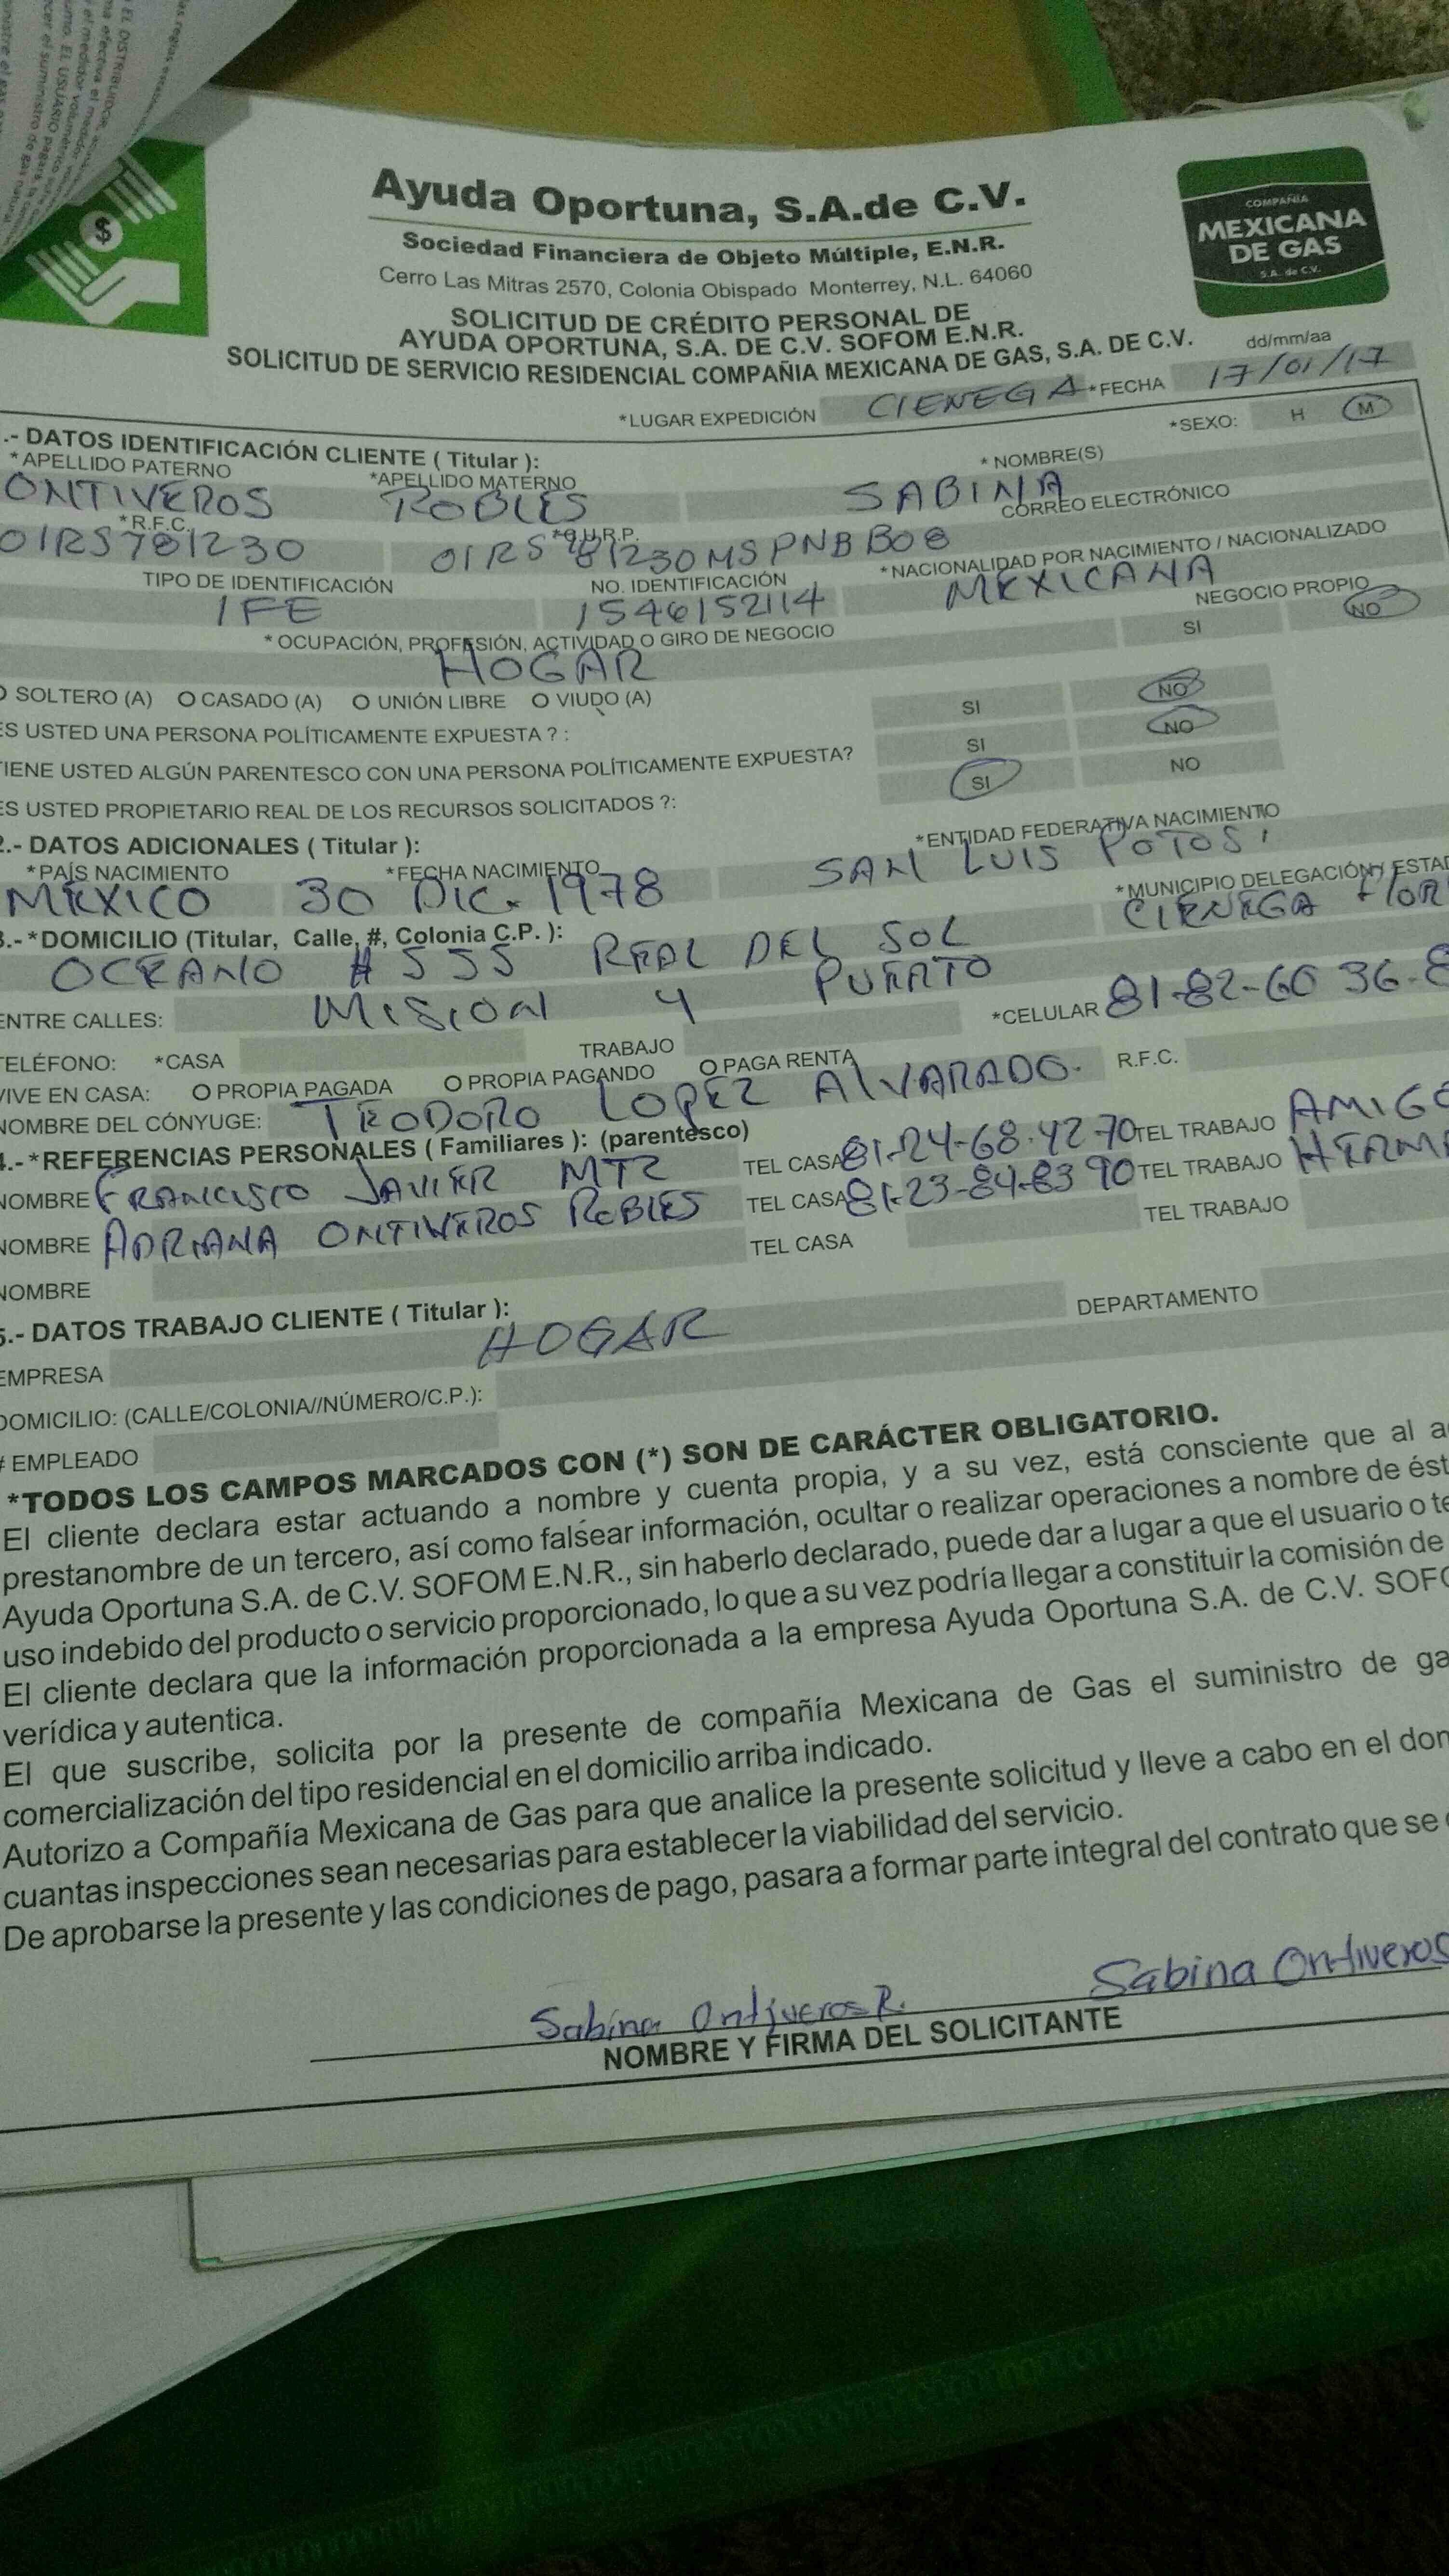 Ayuda Oportuna, S.A.de C.V.
Sociedad Financiera de Objeto Múltiple, E.N.R.
Cerro Las Mitras 2570, Colonia Obispado Monterrey, N.L. 64060
COMPAÑIA
MEXICANA
DE GAS
S.A. de C.V.
SOLICITUD DE CRÉDITO PERSONAL DE
AYUDA OPORTUNA, S.A. DE C.V. SOFOM E.N.R.
SOLICITUD DE SERVICIO RESIDENCIAL COMPAÑIA MEXICANA DE GAS, S.A. DE C.V.
dd/mm/aa
*LUGAR EXPEDICIÓN CIENEGA *FECHA 17/01/17
.- DATOS IDENTIFICACIÓN CLIENTE ( Titular ): *SEXO: H M
*APELLIDO PATERNO *APELLIDO MATERNO * NOMBRE(S)
ONTIVEROS ROBLES SABINA
*R.F.C. *C.U.R.P. CORREO ELECTRÓNICO
OIRS781230 OIRS781230MSPNBB08
TIPO DE IDENTIFICACIÓN NO. IDENTIFICACIÓN *NACIONALIDAD POR NACIMIENTO / NACIONALIZADO
IFE 1546152114 MEXICANA
* OCUPACIÓN, PROFESIÓN, ACTIVIDAD O GIRO DE NEGOCIO NEGOCIO PROPIO
HOGAR SI NO
O SOLTERO (A) O CASADO (A) O UNIÓN LIBRE O VIUDO (A)
ES USTED UNA PERSONA POLÍTICAMENTE EXPUESTA ? : SI NO
TIENE USTED ALGÚN PARENTESCO CON UNA PERSONA POLÍTICAMENTE EXPUESTA? SI NO
ES USTED PROPIETARIO REAL DE LOS RECURSOS SOLICITADOS ?: SI NO
2.- DATOS ADICIONALES ( Titular ):
*PAÍS NACIMIENTO *FECHA NACIMIENTO *ENTIDAD FEDERATIVA NACIMIENTO
MEXICO 30 DIC. 1978 SAN LUIS POTOSI
3.- *DOMICILIO (Titular, Calle, #, Colonia C.P. ): *MUNICIPIO DELEGACIÓN Y ESTAD
OCEANO # 555 REAL DEL SOL CIENEGA FLOR
ENTRE CALLES: MISION Y PUERTO
TELÉFONO: *CASA TRABAJO *CELULAR 81-82-60 36-8
VIVE EN CASA: O PROPIA PAGADA O PROPIA PAGANDO O PAGA RENTA
NOMBRE DEL CÓNYUGE: TEODORO LOPEZ ALVARADO. R.F.C.
4.- *REFERENCIAS PERSONALES ( Familiares ): (parentesco)
NOMBRE FRANCISCO JAVIER MTZ TEL CASA 81-24-68-42-70 TEL TRABAJO AMIGO
NOMBRE ADRIANA ONTIVEROS ROBLES TEL CASA 81-23-84-83 90 TEL TRABAJO HERMA
NOMBRE TEL CASA TEL TRABAJO
5.- DATOS TRABAJO CLIENTE ( Titular ):
EMPRESA HOGAR DEPARTAMENTO
DOMICILIO: (CALLE/COLONIA//NÚMERO/C.P.):
# EMPLEADO
*TODOS LOS CAMPOS MARCADOS CON (*) SON DE CARÁCTER OBLIGATORIO.
El cliente declara estar actuando a nombre y cuenta propia, y a su vez, está consciente que al a
prestanombre de un tercero, así como falsear información, ocultar o realizar operaciones a nombre de ést
Ayuda Oportuna S.A. de C.V. SOFOM E.N.R., sin haberlo declarado, puede dar a lugar a que el usuario o te
uso indebido del producto o servicio proporcionado, lo que a su vez podría llegar a constituir la comisión de
El cliente declara que la información proporcionada a la empresa Ayuda Oportuna S.A. de C.V. SOFO
verídica y autentica.
El que suscribe, solicita por la presente de compañía Mexicana de Gas el suministro de ga
comercialización del tipo residencial en el domicilio arriba indicado.
Autorizo a Compañía Mexicana de Gas para que analice la presente solicitud y lleve a cabo en el dom
cuantas inspecciones sean necesarias para establecer la viabilidad del servicio.
De aprobarse la presente y las condiciones de pago, pasara a formar parte integral del contrato que se
Sabina Ontiveros R. Sabina Ontiveros
NOMBRE Y FIRMA DEL SOLICITANTE